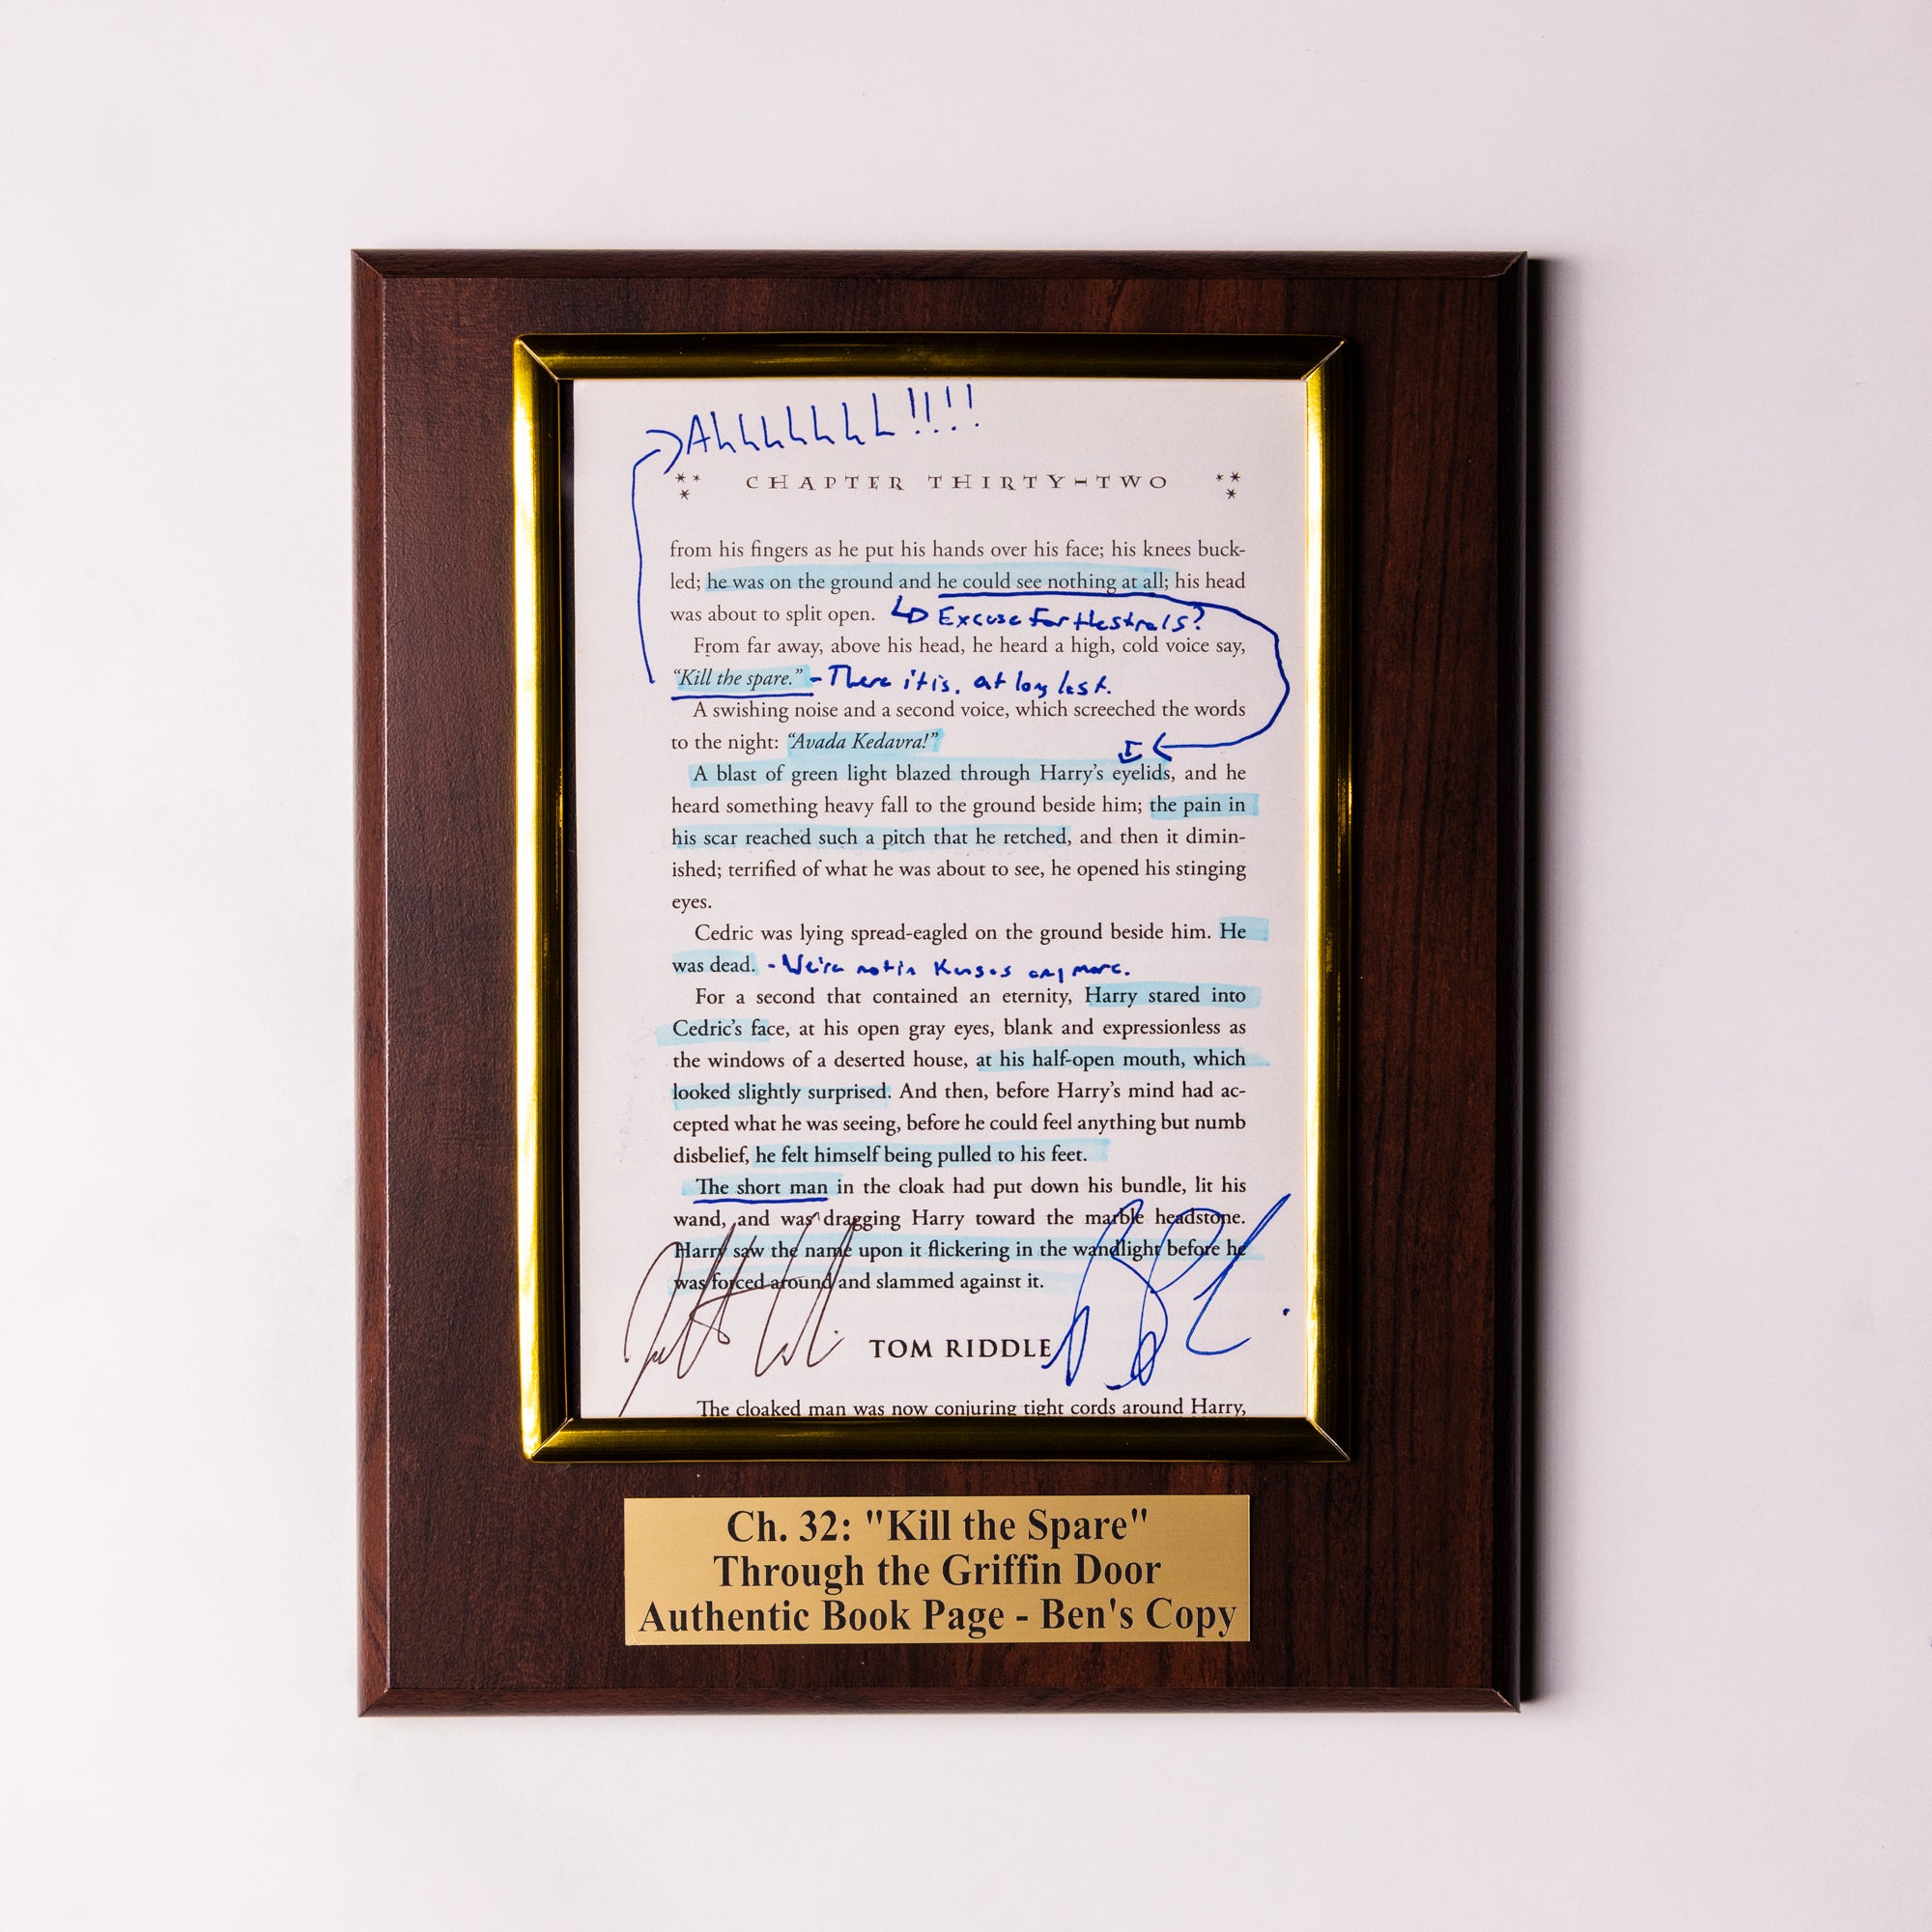 AhhhhhhL!!!!
CHAPTER THIRTY-TWO
from his fingers as he put his hands over his face; his knees buck-
led; he was on the ground and he could see nothing at all; his head
was about to split open. Excuse for thestrals?
From far away, above his head, he heard a high, cold voice say,
“Kill the spare.” - There it is. at long last.
A swishing noise and a second voice, which screeched the words
to the night: “Avada Kedavra!”
A blast of green light blazed through Harry’s eyelids, and he
heard something heavy fall to the ground beside him; the pain in
his scar reached such a pitch that he retched, and then it dimin-
ished; terrified of what he was about to see, he opened his stinging
eyes.
Cedric was lying spread-eagled on the ground beside him. He
was dead. - We're not in Kansas anymore.
For a second that contained an eternity, Harry stared into
Cedric’s face, at his open gray eyes, blank and expressionless as
the windows of a deserted house, at his half-open mouth, which
looked slightly surprised. And then, before Harry’s mind had ac-
cepted what he was seeing, before he could feel anything but numb
disbelief, he felt himself being pulled to his feet.
The short man in the cloak had put down his bundle, lit his
wand, and was dragging Harry toward the marble headstone.
Harry saw the name upon it flickering in the wandlight before he
was forced around and slammed against it.
TOM RIDDLE
The cloaked man was now conjuring tight cords around Harry,
Ch. 32: "Kill the Spare"
Through the Griffin Door
Authentic Book Page - Ben's Copy